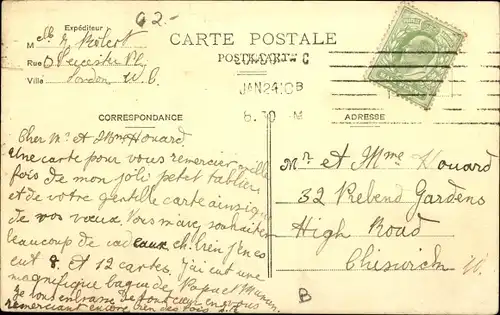 62-
Expéditeur
M
Rue
Ville London W.C.
CARTE POSTALE
POSTCARD
W C
JAN 24 08
6.30 M
CORRESPONDANCE
ADRESSE
Cher Mr et Mme Houard.
Une carte pour vous remercier mille
fois de mon joli petit tablier
et de votre gentille carte ainsi que
de vos vœux. Vous m'avez souhaiter
beaucoup de cadeaux eh bien j'en es
eut 8 et 12 cartes. J'ai eut une
magnifique bague de Papa et Maman.
Je vous embrasse de tout cœur en vous
remerciant encore bien des fois
Mr et Mme Houard
32 Prebend Gardens
High Road
Chiswick
W.